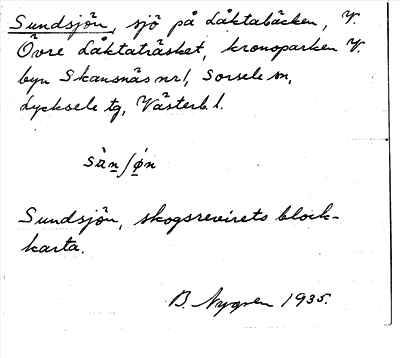 Sundsjön, sjö på Låktabäcken, V.
Övre Låktaträsket, kronoparken V.
byn Skansnäs nr 1, Sorsele sn,
Lycksele tg, Västerb. l.
sànʃǿn
Sundsjön, skogsrevirets block-
karta.
B. Nygren 1935.